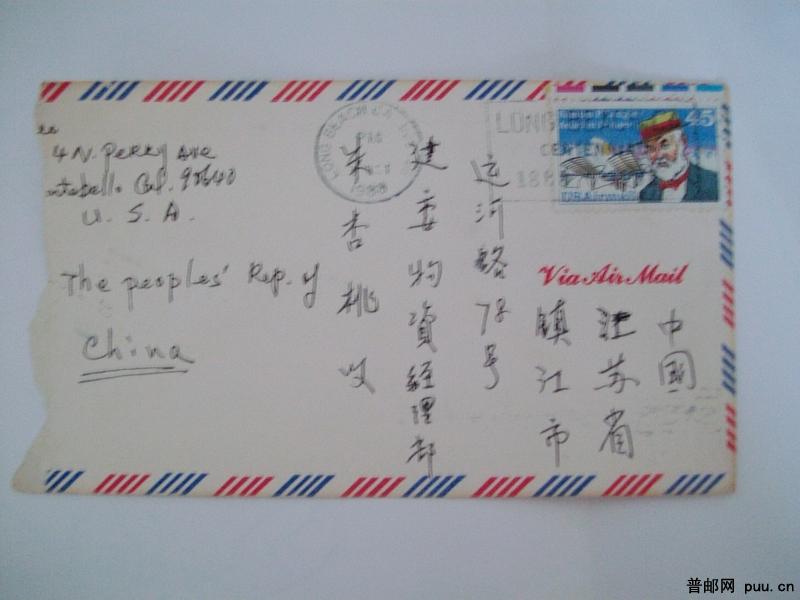 4 N. Perry Ave
Cal. 90640
U. S. A.
The peoples' Rep. of
China
LONG BEACH CA
PM
1988
LONG
CENTENNIAL
188
45
USAirmail
Via Air Mail
中國
江苏省
鎮江市
运河路78号
建委物資經理部
朱杏桃收
普邮网 puu.cn